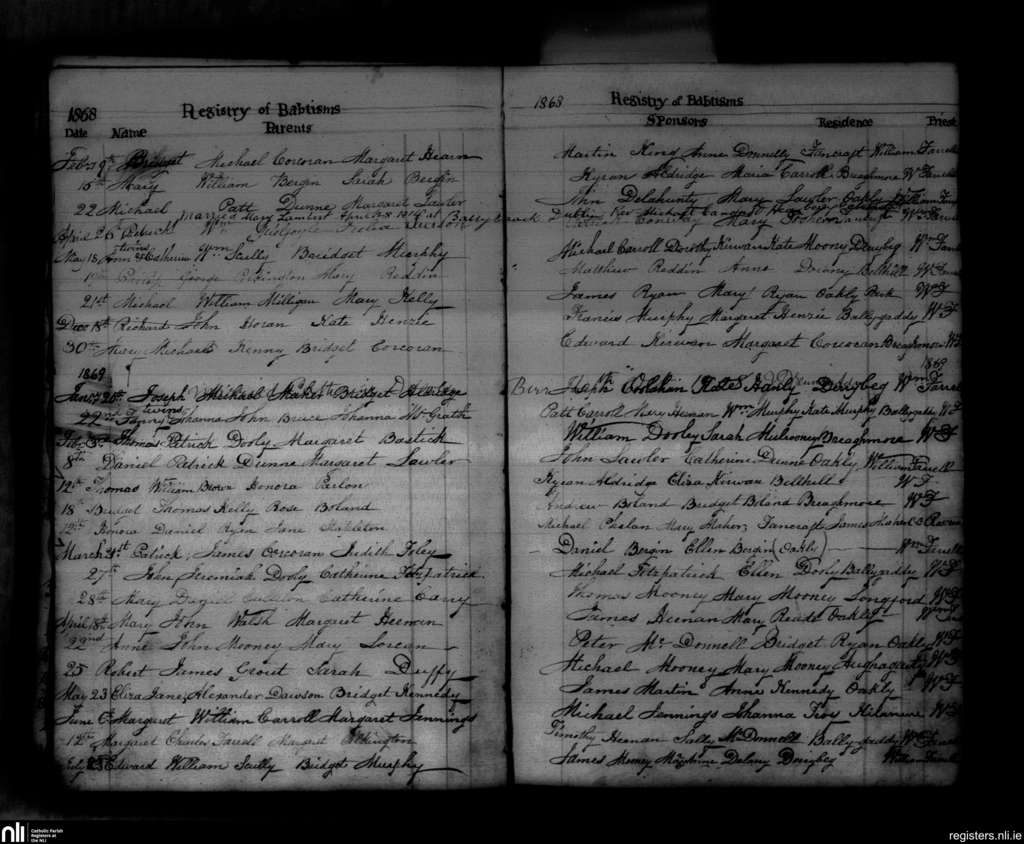 1868 Registry of Baptisms
Date Name Parents
Feb 9th Bridget Michael Corcoran Margaret Hearn
15th Mary William Bergin Sarah Bergin
22 Michael Patt Dunne Margaret Lawler
married Mary Lambert April 28 1914 at
April 26th Patrick Wm
twins
May 18 Ann & Catherine Wm Scully Bridget Murphy
19th George Pilkington Mary Reddin
21st Michael William Milligan Mary Kelly
Decr 18th Richard John Horan Kate Henzie
30th Mary Michael Kenny Bridget Corcoran
1869
20th Joseph Michael Maher Bridget
twins
22nd Fanny Johanna John Bruce Johanna McGrath
Feb 3rd Thomas Patrick Dooly Margaret Bastick
8th Daniel Patrick Dunne Margaret Lawler
12th Thomas William Brown Honora Parlon
18 Bridget Thomas Kelly Rose Boland
12th Honora Daniel Ryan Jane Stapleton
March 21st Patrick James Corcoran Judith Foley
27th John Jeremiah Dooly Catherine Fitzpatrick
28th Mary Daniel Catherine Carry
April 18th Mary John Walsh Margaret Heenan
22nd Anne John Mooney Mary
25 Robert James Grout Sarah Duffy
May 23 Eliza Jane Alexander Dawson Bridget Kennedy
June 6 Margaret William Carroll Margaret Jennings
12th Margaret Charles Farrell Margaret Pilkington
July 25 Edward William Scully Bridget Murphy
1868 Registry of Baptisms
Sponsors Residence Priest
Martin King Anne Donnelly Fancraft William Farrell
Kyran Aldridge Maria Carroll Breaghmore Wm Farrell
John Delahunty Mary Lawler Oakly William
Dublin Rev
Michael Carroll Dorothy Kirwan Kate Mooney Derrybeg Wm
Matthew Reddin Anne Delany Bellhill W
James Ryan Mary Ryan Oakly Park WF
Francis Murphy Margaret Henzie Ballygaddy WF
Edward Kirwan Margaret Corcoran Breaghmore WF
1869
Birr Kate Hardy Derrybeg Wm Farrell
Patt Carroll Mary Henan Wm Murphy Kate Murphy Ballygaddy WF
William Dooly Sarah Mulrooney Breaghmore WF
John Lawler Catherine Dunne Oakly William Farrell
Kyran Aldridge Eliza Kirwan Bellhill WF
Andrew Boland Bridget Boland Breaghmore WF
Michael Phelan Mary Maher Fancraft James Maher CC
Daniel Bergin Ellen Bergin (Oakly) Wm Farrell
Michael Fitzpatrick Ellen Dooly Ballygaddy WF
Thomas Mooney Mary Mooney Longford WF
James Heenan Mary Reade Oakly Wm F
Peter McDonnell Bridget Ryan Oakly WF
Michael Mooney Mary Mooney WF
James Martin Anne Kennedy Oakly WF
Michael Jennings Johanna Troy WF
Timothy Heenan Sally McDonnell Ballygaddy Wm
James Mooney Delany Derrybeg William Farrell
nli
Catholic Parish
Registers at
the NLI
registers.nli.ie